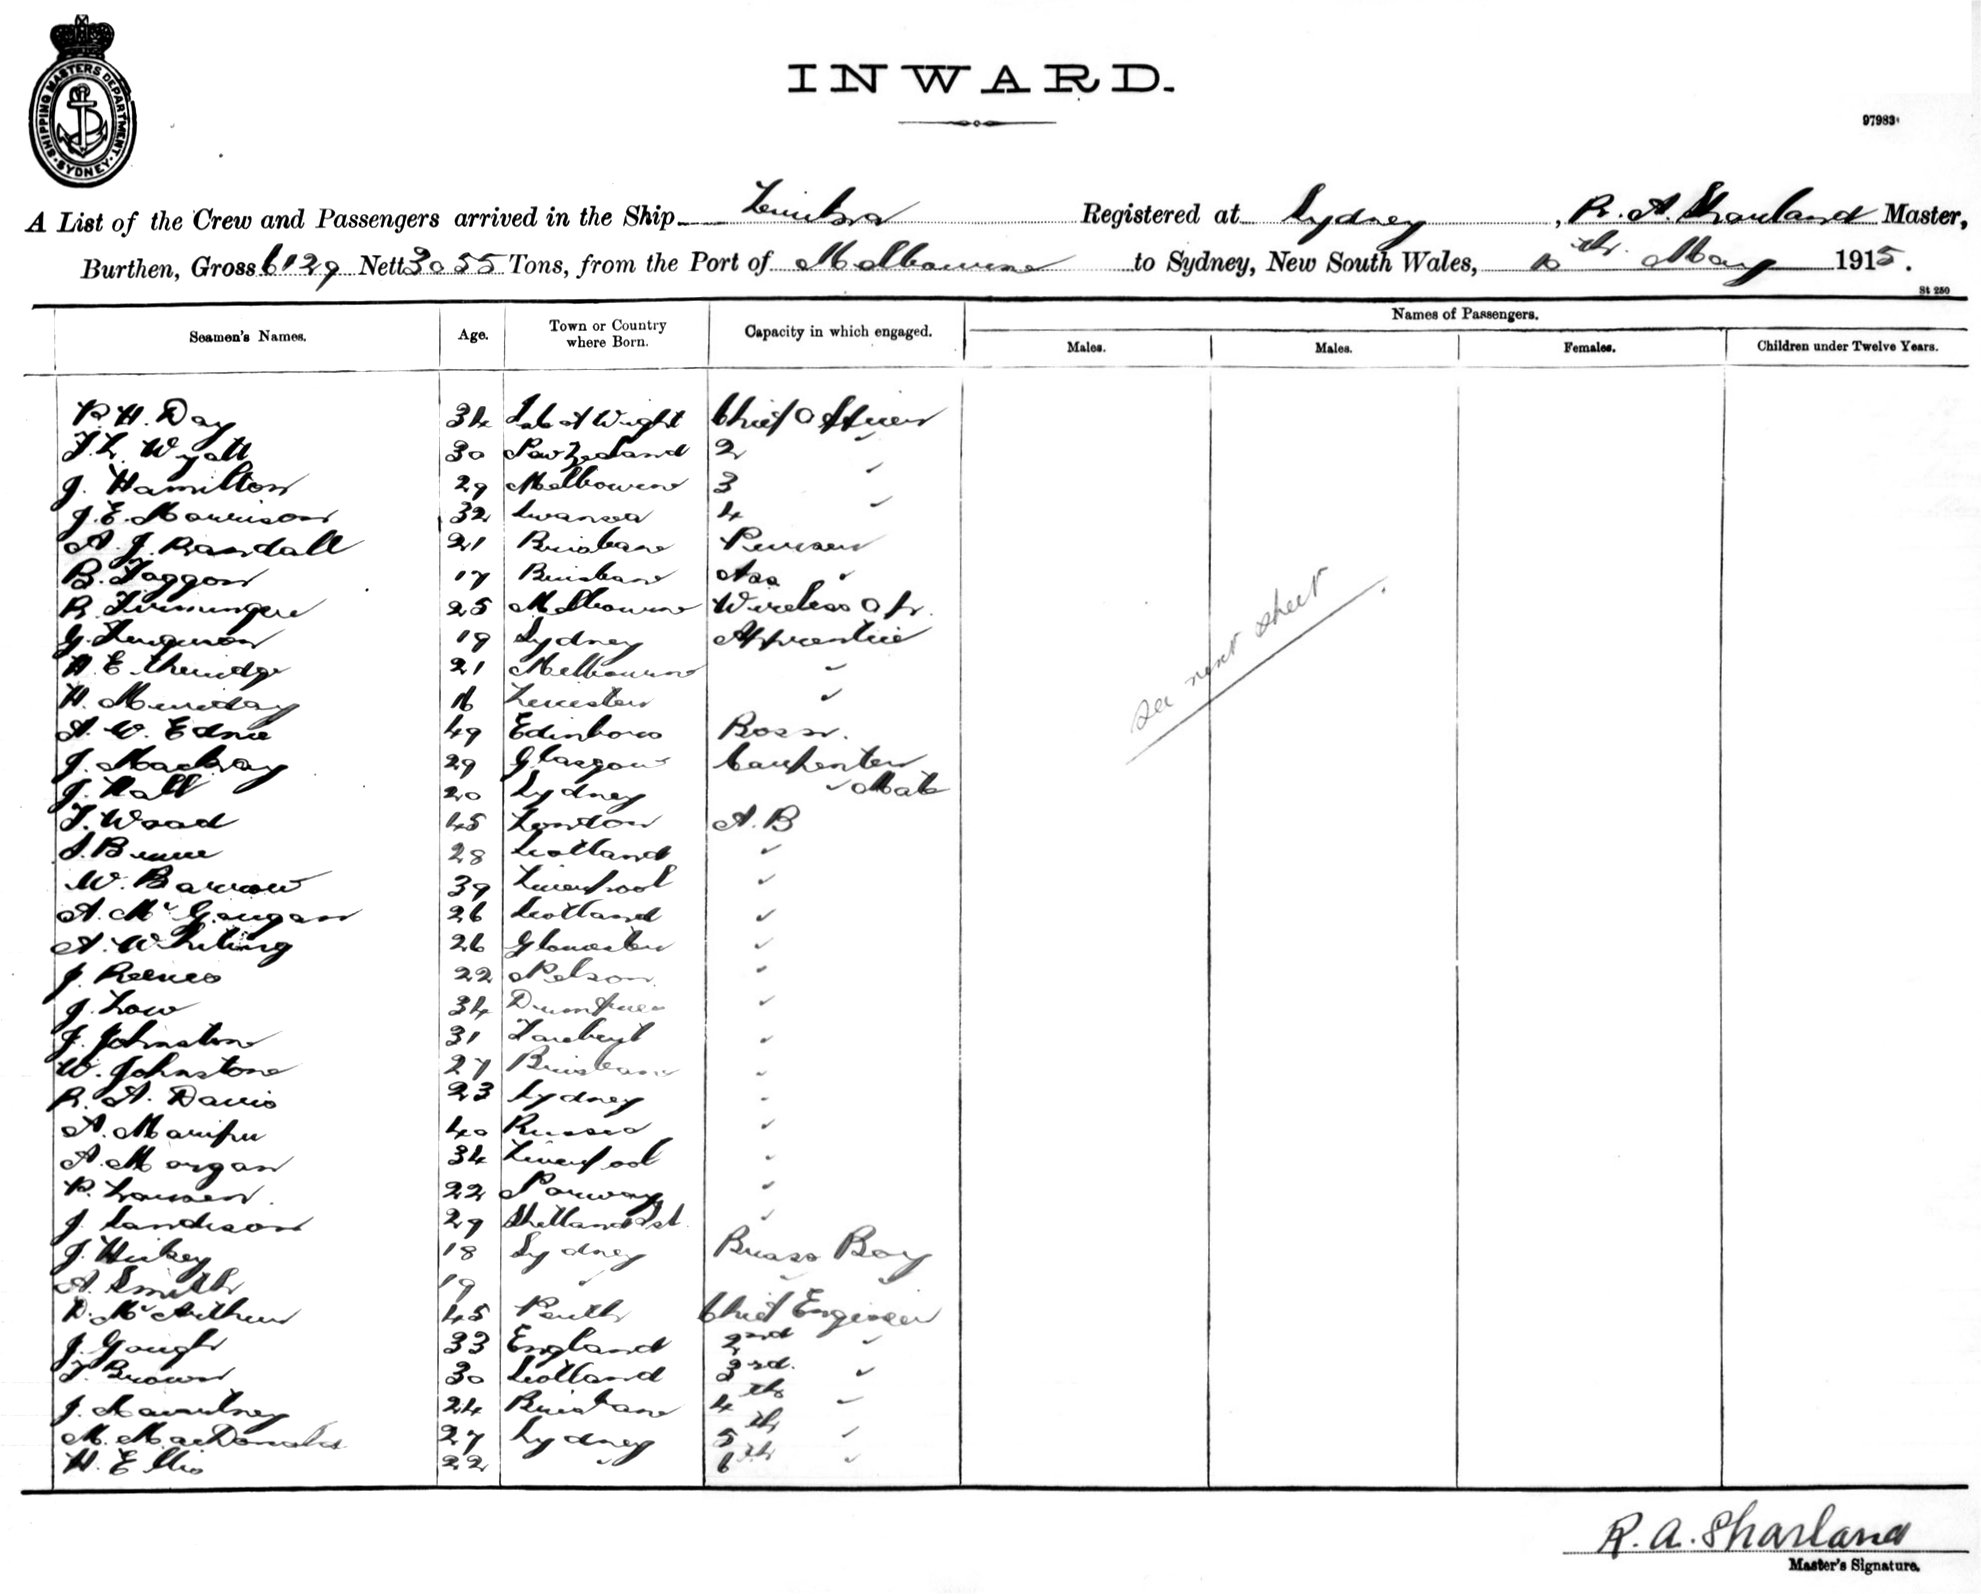 SHIPPING MASTERS DEPARTMENT. SYDNEY
INWARD.
97983
A List of the Crew and Passengers arrived in the Ship Zinubra Registered at Sydney, R. A. Sharland Master,
Burthen, Gross 6129 Nett 3055 Tons, from the Port of Melbourne to Sydney, New South Wales, 10th May 1915.
St 250
Names of Passengers.
Seamen's Names. Age. Town or Country where Born. Capacity in which engaged. Males. Males. Females. Children under Twelve Years.
P. H. Day 34 Isle of Wight Chief Officer
T. L. Wyatt 30 New Zealand 2 "
J. Hamilton 29 Melbourne 3 "
J. E. Morrison 32 Swansea 4 "
A. J. Randall 21 Brisbane Purser
B. Taggon 17 Brisbane Ass "
R. 25 Melbourne Wireless Opr.
G. Ferguson 19 Sydney Apprentice
H. Etheridge 21 Melbourne "
H. Munday 16 Leicester "
A. W. Ednie 49 Edinboro Bosn.
J. Mackay 29 Glasgow Carpenter
J. Hall 20 Sydney " Mate
T. Wood 45 London A. B
28 Scotland "
W. Barrow 39 Liverpool "
A. McGougan 26 Scotland "
A. Whiting 26 Gloucester "
J. Reeves 22 Nelson "
J. Low 34 Dumfries "
J. Johnston 31 "
W. Johnstone 27 Brisbane "
R. A. Davis 23 Sydney "
A. 40 Russia "
A. Morgan 34 Liverpool "
P. Larsen 22 Norway "
J. Sandison 29 Shetland Isl. "
J. Hickey 18 Sydney Brass Boy
A. Smith 19 " " "
D. McArthur 45 Perth Chief Engineer
J. Gough 33 England 2nd "
T. Brown 30 Scotland 3rd. "
J. Macartney 24 Brisbane 4th "
M. MacDonald 27 Sydney 5th "
H. Ellis 22 " 6th "
see next sheet
R. A. Sharland
Master's Signature.